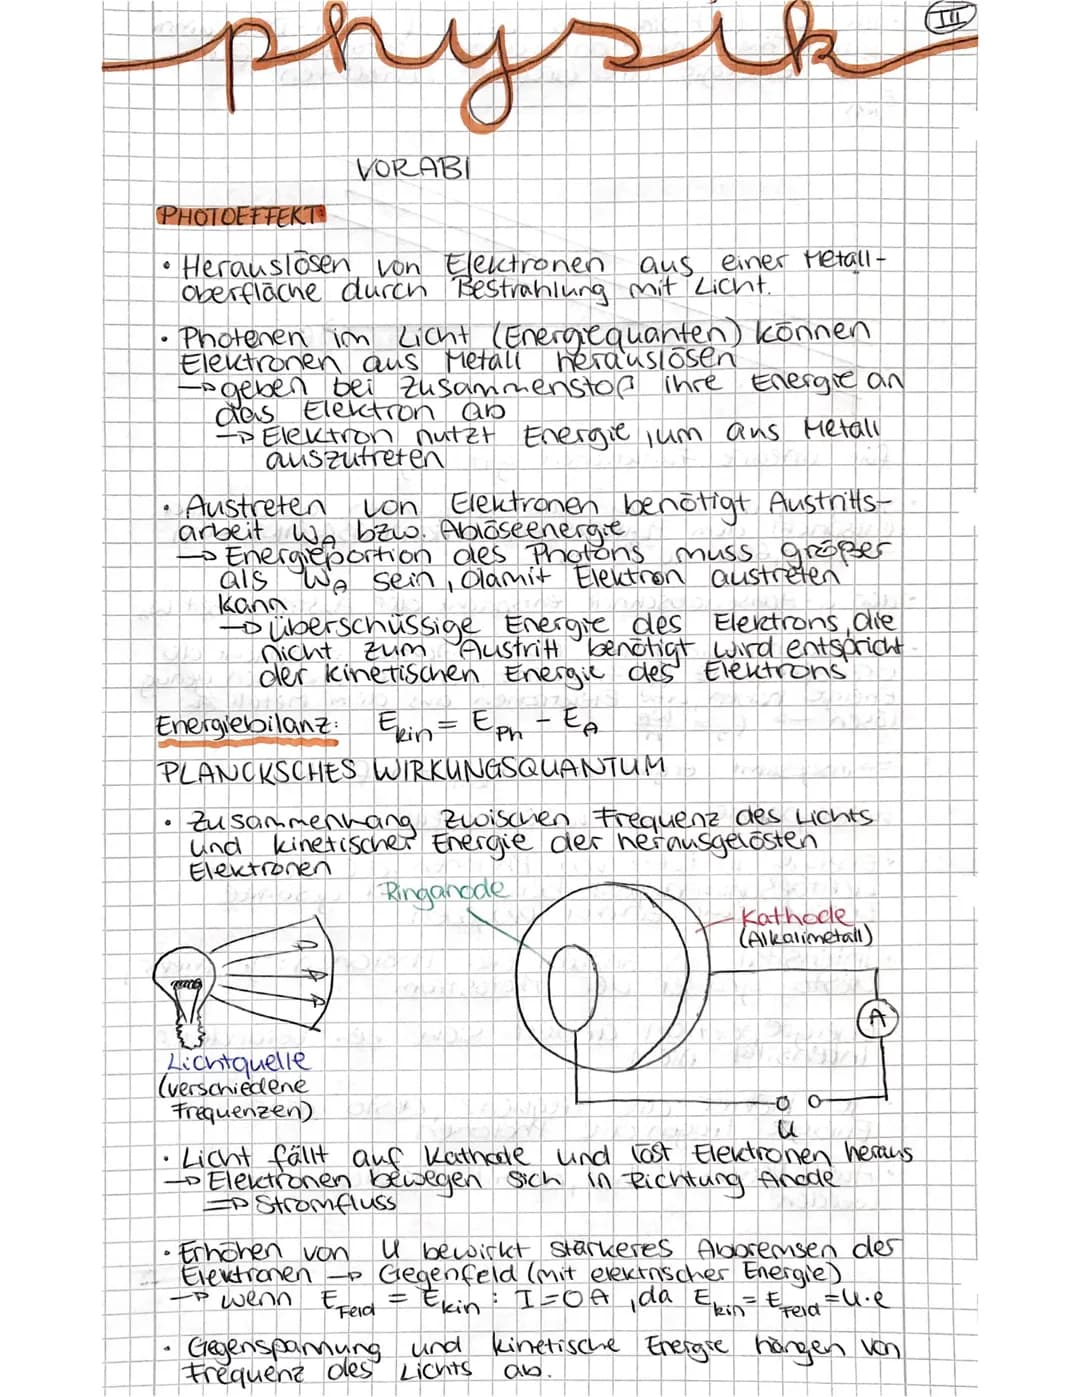 physik
III
VORABI
PHOTOEFFEKT
• Herauslösen von Elektronen aus einer Metall-
oberfläche durch Bestrahlung mit Licht.
• Photenen im Licht (Energiequanten) können
Elektronen aus Metall herauslösen
→ geben bei Zusammenstoß ihre Energie an
das Elektron ab
→ Elektron nutzt Energie, um aus Metall
auszutreten
• Austreten von Elektronen benötigt Austritts-
arbeit W_A bzw. Ablöseenergie
→ Energieportion des Photons muss größer
als W_A sein, damit Elektron austreten
kann
→ überschüssige Energie des Elektrons, die
nicht zum Austritt benötigt wird entspricht
der kinetischen Energie des Elektrons
Energiebilanz: E_kin = E_Ph - E_A
PLANCKSCHES WIRKUNGSQUANTUM
• Zusammenhang zwischen Frequenz des Lichts
und kinetischer Energie der herausgelösten
Elektronen
Ringanode
Kathode
(Alkalimetall)
A
Lichtquelle
(verschiedene
Frequenzen)
U
• Licht fällt auf Kathode und löst Elektronen heraus
→ Elektronen bewegen sich in Richtung Anode
⇒ Stromfluss
• Erhöhen von U bewirkt stärkeres Abbremsen der
Elektronen → Gegenfeld (mit elektrischer Energie)
→ wenn E_Feld = E_kin : I = 0A, da E_kin = E_Feld = U·e
• Gegenspannung und kinetische Energie hängen von
Frequenz des Lichts ab.